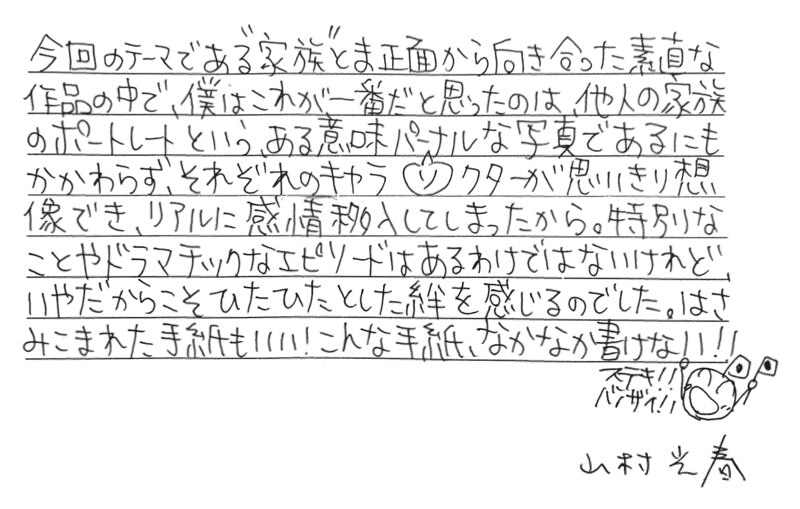 今回のテーマである"家族"とま正面から向き合った素直な
作品の中で、僕はこれが一番だと思ったのは、他人の家族
のポートレートという、ある意味パーソナルな写真であるにも
かかわらず、それぞれのキャラクターが思いきり想
像でき、リアルに感情移入してしまったから。特別な
ことやドラマチックなエピソードはあるわけではないけれど、
いやだからこそひたひたとした絆を感じるのでした。はさ
みこまれた手紙もいい!こんな手紙、なかなか書けない!!
ステキ!!
バンザイ!!
山村光春